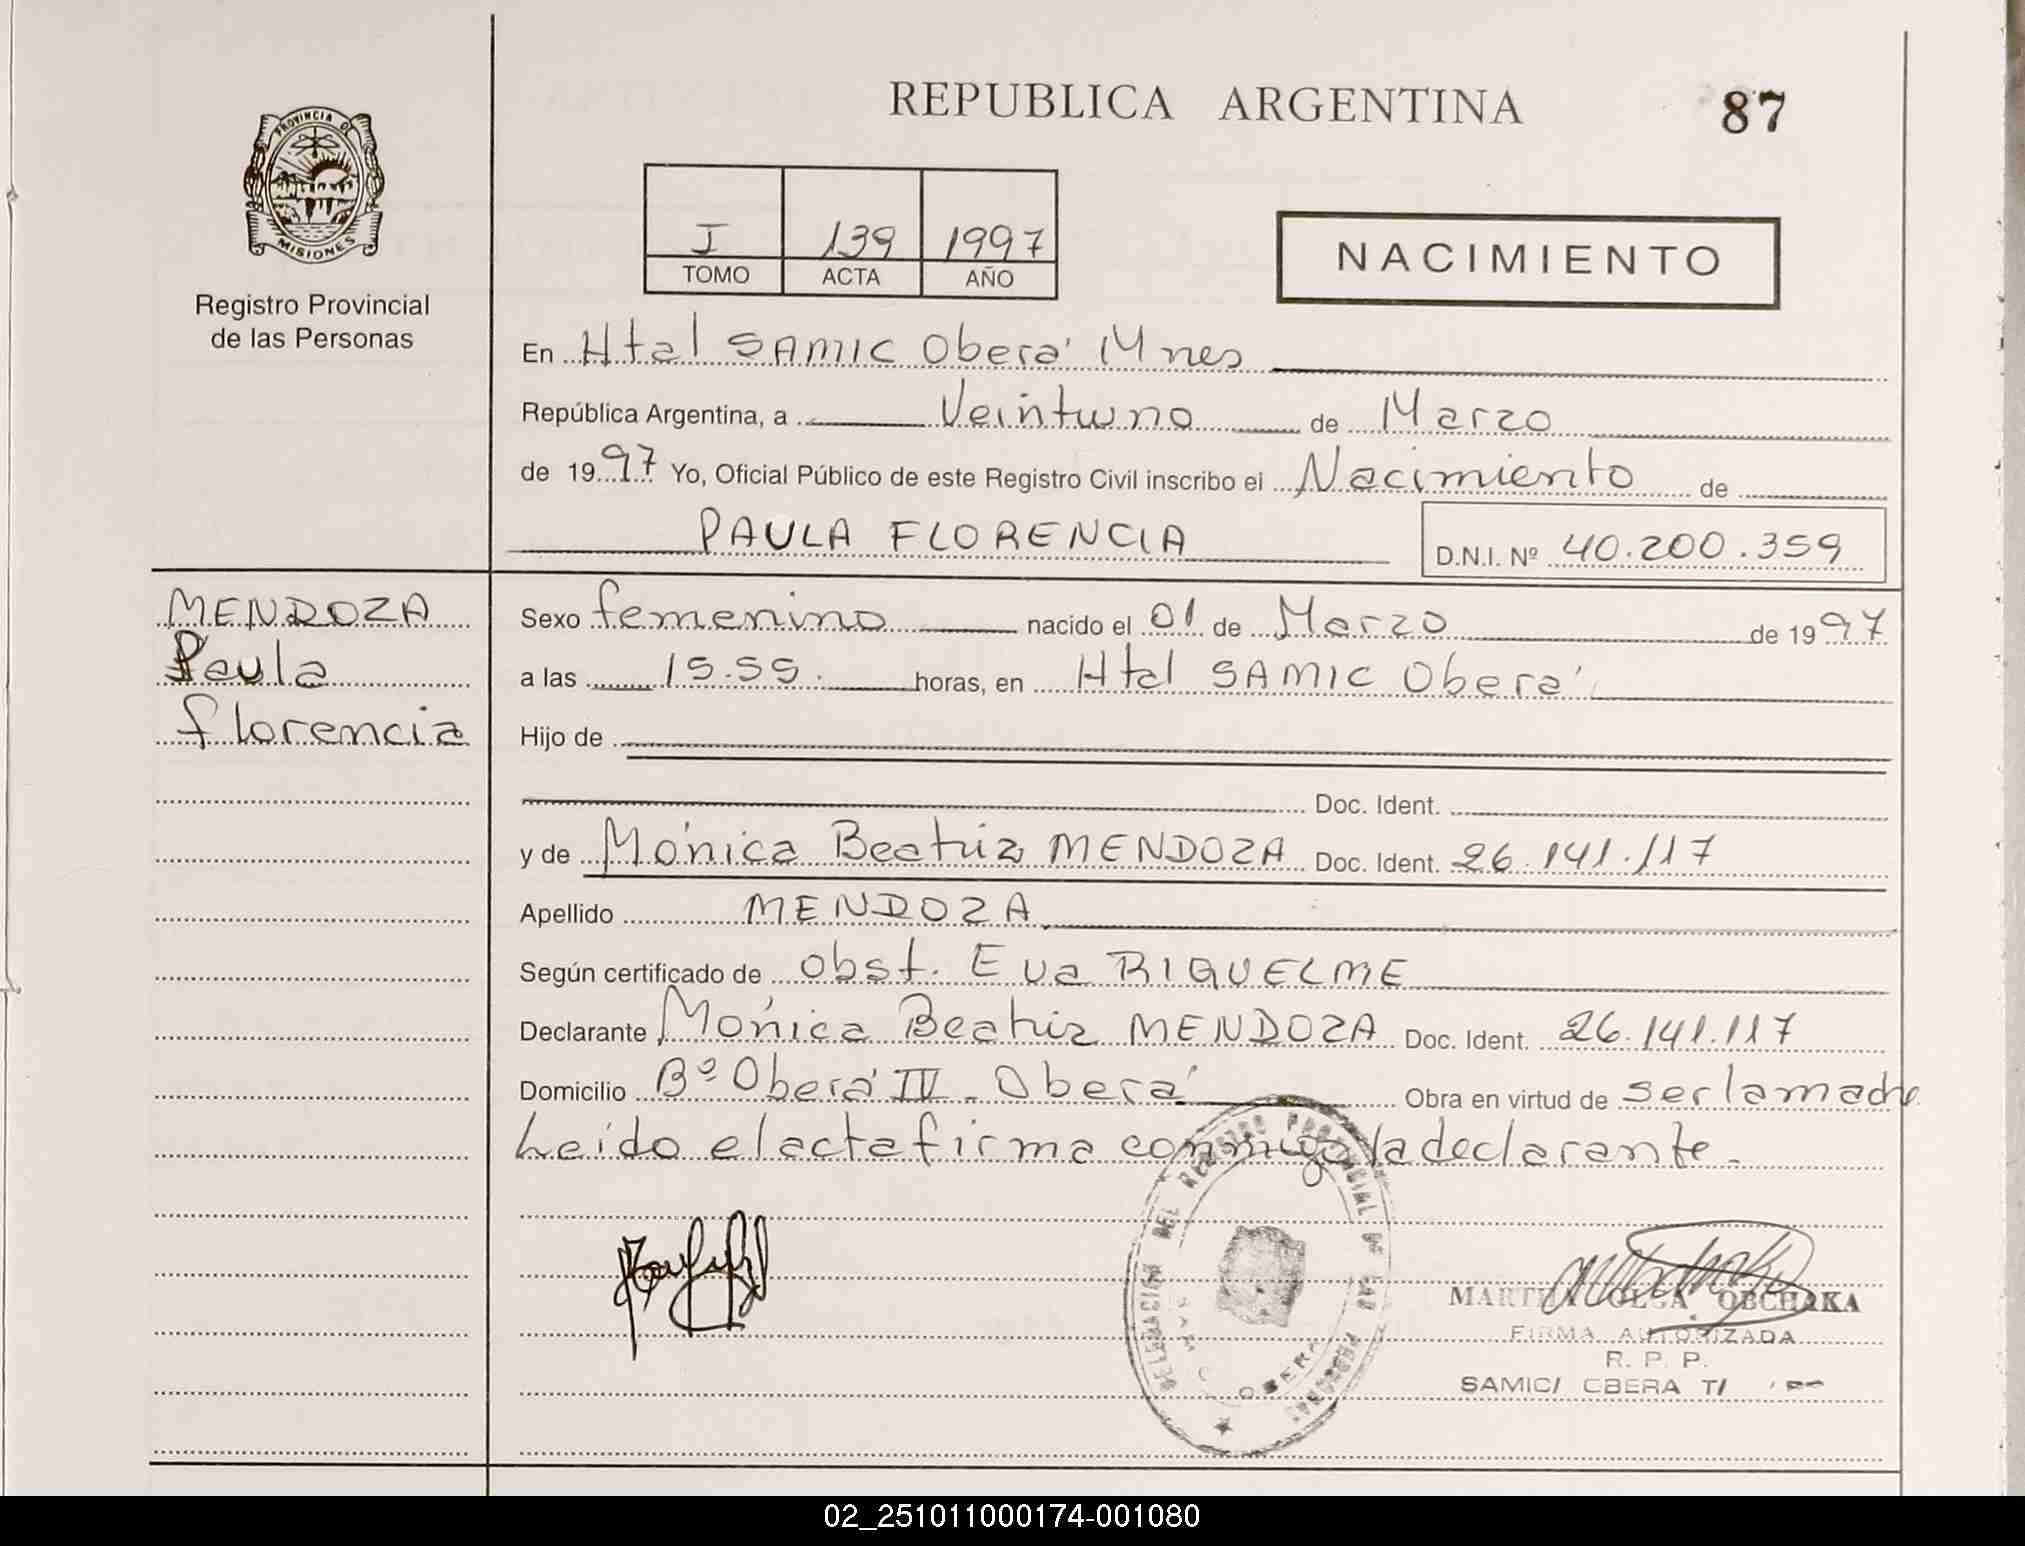 REPUBLICA ARGENTINA
87
PROVINCIA DE
MISIONES
Registro Provincial
de las Personas
I 139 1997
TOMO ACTA AÑO
NACIMIENTO
En Htal SAMIC Oberá Mnes
República Argentina, a Veintiuno de Marzo
de 1997 Yo, Oficial Público de este Registro Civil inscribo el Nacimiento de
PAULA FLORENCIA D.N.I. Nº 40.200.359
MENDOZA
Paula
florencia
Sexo femenino nacido el 01 de Marzo de 1997
a las 15.55. horas, en Htal SAMIC Oberá
Hijo de
Doc. Ident.
y de Mónica Beatriz MENDOZA Doc. Ident. 26.141.117
Apellido MENDOZA
Según certificado de Obst. Eva RIQUELME
Declarante Mónica Beatriz MENDOZA Doc. Ident. 26.141.117
Domicilio Bº Oberá IV - Oberá Obra en virtud de ser la madre
Leído el acta firma conmigo la declarante.
DELEGACIÓN DEL REGISTRO PROVINCIAL DE LAS PERSONAS
OBERA
MARTHA OLGA OBCHAKA
FIRMA AUTORIZADA
R. P. P.
SAMIC/ OBERA T/
02_251011000174-001080